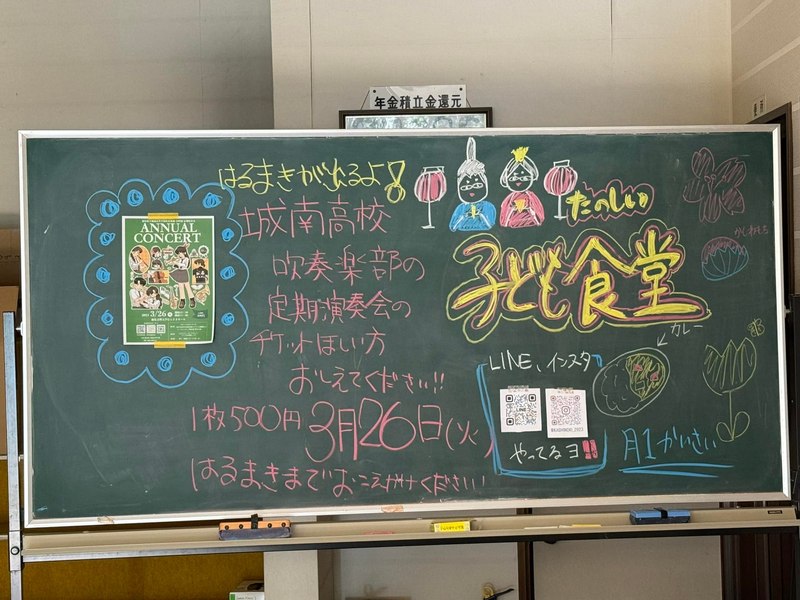 年金積立金還元
はるまきが出るよ!
城南高校
吹奏楽部の
定期演奏会の
チケットほしい方
おしえてください!!
1枚500円 3月26日(火)
はるまきまでおこえがけください!!
ANNUAL
CONCERT
3/26
たのしい
子ども食堂
かしわもち
カレー
LINE、インスタ
LINE
やってるヨ!!
月1かいさい